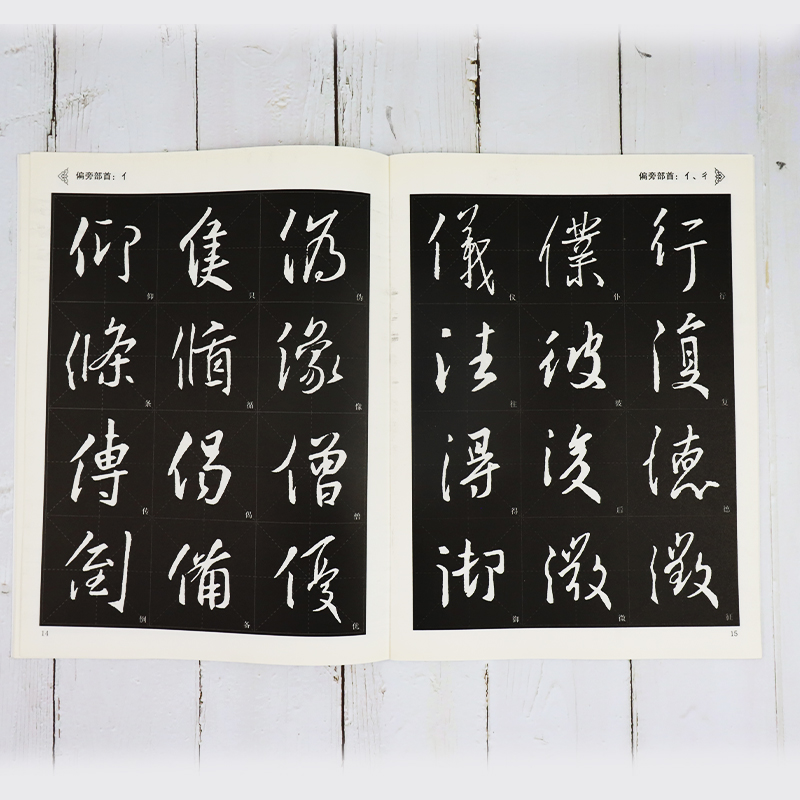 偏旁部首：亻
仰 隻 偽
仰 只 伪
條 循 像
条 循 像
傳 偈 僧
传 偈 僧
倒 備 優
倒 备 优
14
偏旁部首：亻、彳
儀 僕 行
仪 仆 行
往 彼 復
往 彼 复
得 後 德
得 后 德
御 微 徵
御 微 征
15